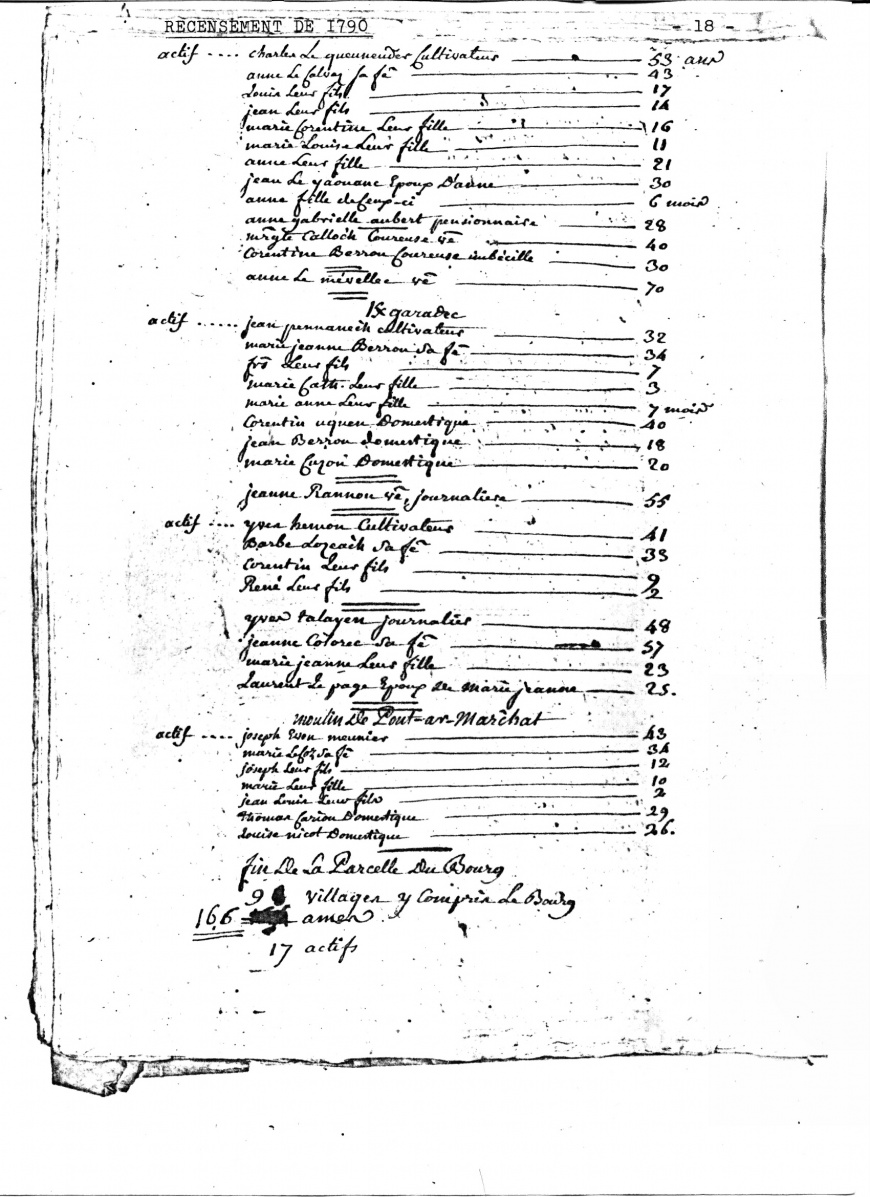 RECENSEMENT DE 1790 - 18 -
actif .... charles Le queunendes Cultivateur 53 ans
anne Le Calvez sa fe 43
Louis Leur fils 17
jean Leur fils 14
marie Corentine Leur fille 16
marie Louise Leur fille 11
anne Leur fille 21
jean Le yaouanc Epoux D'anne 30
anne fille de Ceux-ci 6 mois
anne gabrielle aubert pensionnaire 28
mgte Calloch Coureuse ve 40
Corentine Berrou Coureuse imbécille 30
anne Le mévellec ve 70
garadec
actif ...... jean pennanech cultivateur 32
marie jeanne Berrou sa fe 34
frs Leur fils 7
marie Cath. Leur fille 3
marie anne Leur fille 7 mois
Corentin uguen Domestique 40
jean Berrou domestique 18
marie Cuzon Domestique 20
jeanne Rannou ve, journaliere 55
actif .... yves hemon Cultivateur 41
Barbe Lozeach sa fe 33
Corentin Leur fils 9
René Leur fils 2
yves talayen journalier 48
jeanne Cotorec sa fe 57
marie jeanne Leur fille 23
Laurent Le page Epoux de marie jeanne 25.
moulin De Pont-ar-Marc'hat
actif .... joseph Evon meunier 43
marie Le Coz sa fe 34
joseph Leur fils 12
marie Leur fille 10
jean Louis Leur fils 2
thomas Cariou Domestique 29
Louise nicot Domestique 26.
fin De La Parcelle Du Bourg
9 villages y Compris Le Bourg
166 ames
17 actifs